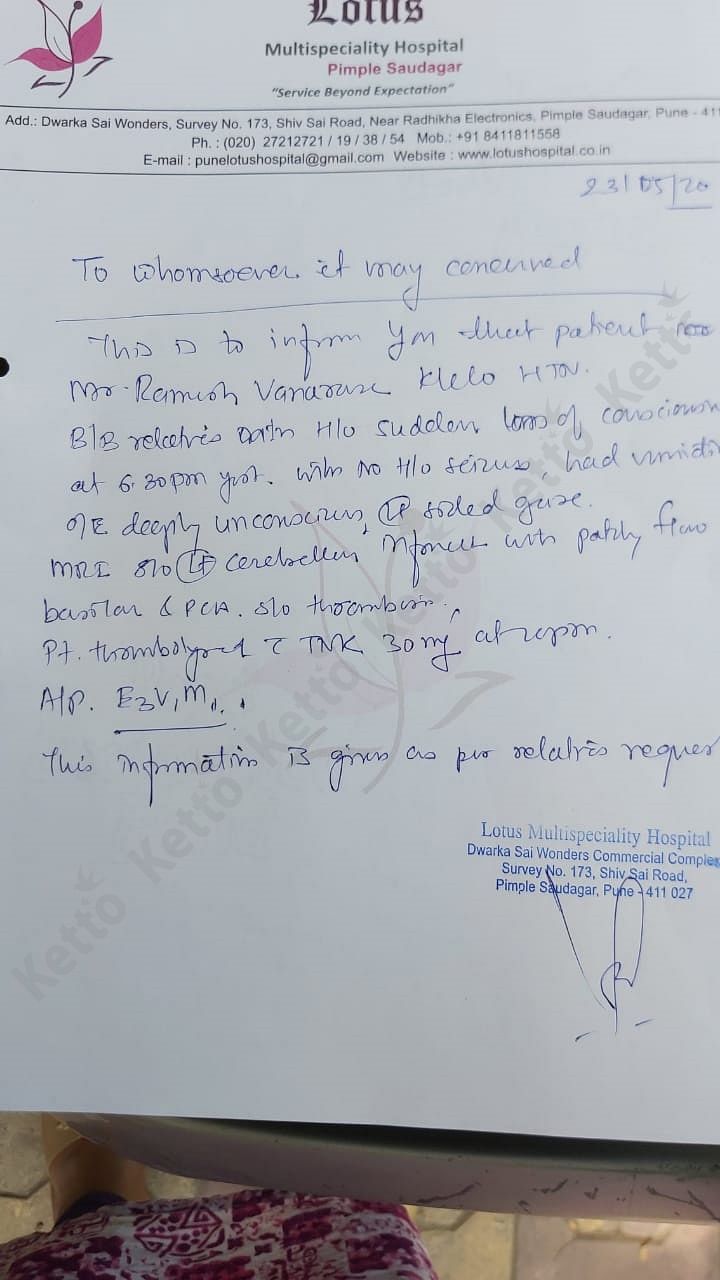 Lotus
Multispeciality Hospital
Pimple Saudagar
"Service Beyond Expectation"
Add.: Dwarka Sai Wonders, Survey No. 173, Shiv Sai Road, Near Radhikha Electronics, Pimple Saudagar, Pune - 411
Ph. : (020) 27212721 / 19 / 38 / 54 Mob.: +91 8411811558
E-mail : punelotushospital@gmail.com Website : www.lotushospital.co.in
23/05/20
To whomsoever it may concerned
This is to inform you that patient
Mr. Ramesh Vanarase K/c/o HTN.
B/B relatives with H/o sudden loss of consciousn
at 6.30pm with no H/o seizure, had vomiti
O/E deeply unconscious, (L) sided gaze.
MRI s/o (L) cerebellar infarct with patchy flow
basilar & PCA. s/o thrombus.
Pt. thrombolysed c TNK 30mg at
A/P. E3V1M1.
This information is given as per relatives reques
Lotus Multispeciality Hospital
Dwarka Sai Wonders Commercial Complex
Survey No. 173, Shiv Sai Road,
Pimple Saudagar, Pune - 411 027
Ketto Ketto Ketto Ketto Ketto Ketto Ketto